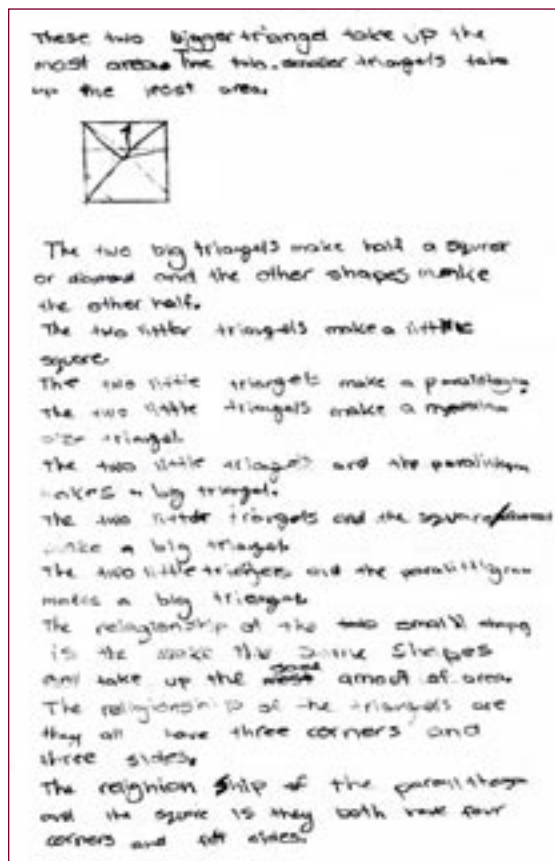 These two bigger triangel take up the
most area. The two smaller triangels take
up the least area.
The two big triangels make half a
or diamond and the other shapes make
the other half.
The two litter triangels make a little
square.
The two little triangels make a
The two little triangels make a
size triangel.
The two little triangels and the
makes a big triangel.
The two litter triangels and the square/diamond
make a big triangel.
The two little and the
makes a big triangel.
The of the small
is the make the same shapes
and take up the same amout of area.
The of the triangels are
they all have three corners and
three sides.
The reighion ship of the
and the square is they both have four
corners and sides.